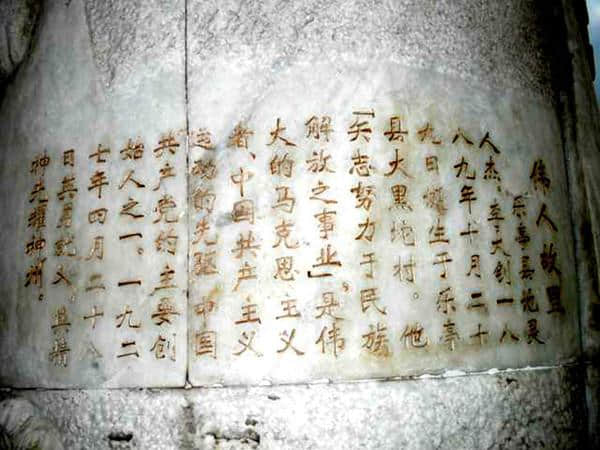 伟人故里
乐亭县地灵
人杰。李大钊一八
八九年十月二十
九日诞生于乐亭
县大黑坨村。他
「矢志努力于民族
解放之事业」,是伟
大的马克思主义
者、中国共产主义
运动的先驱、中国
共产党的主要创
始人之一。一九二
七年四月二十八
日英勇就义,其精
神光耀神州。